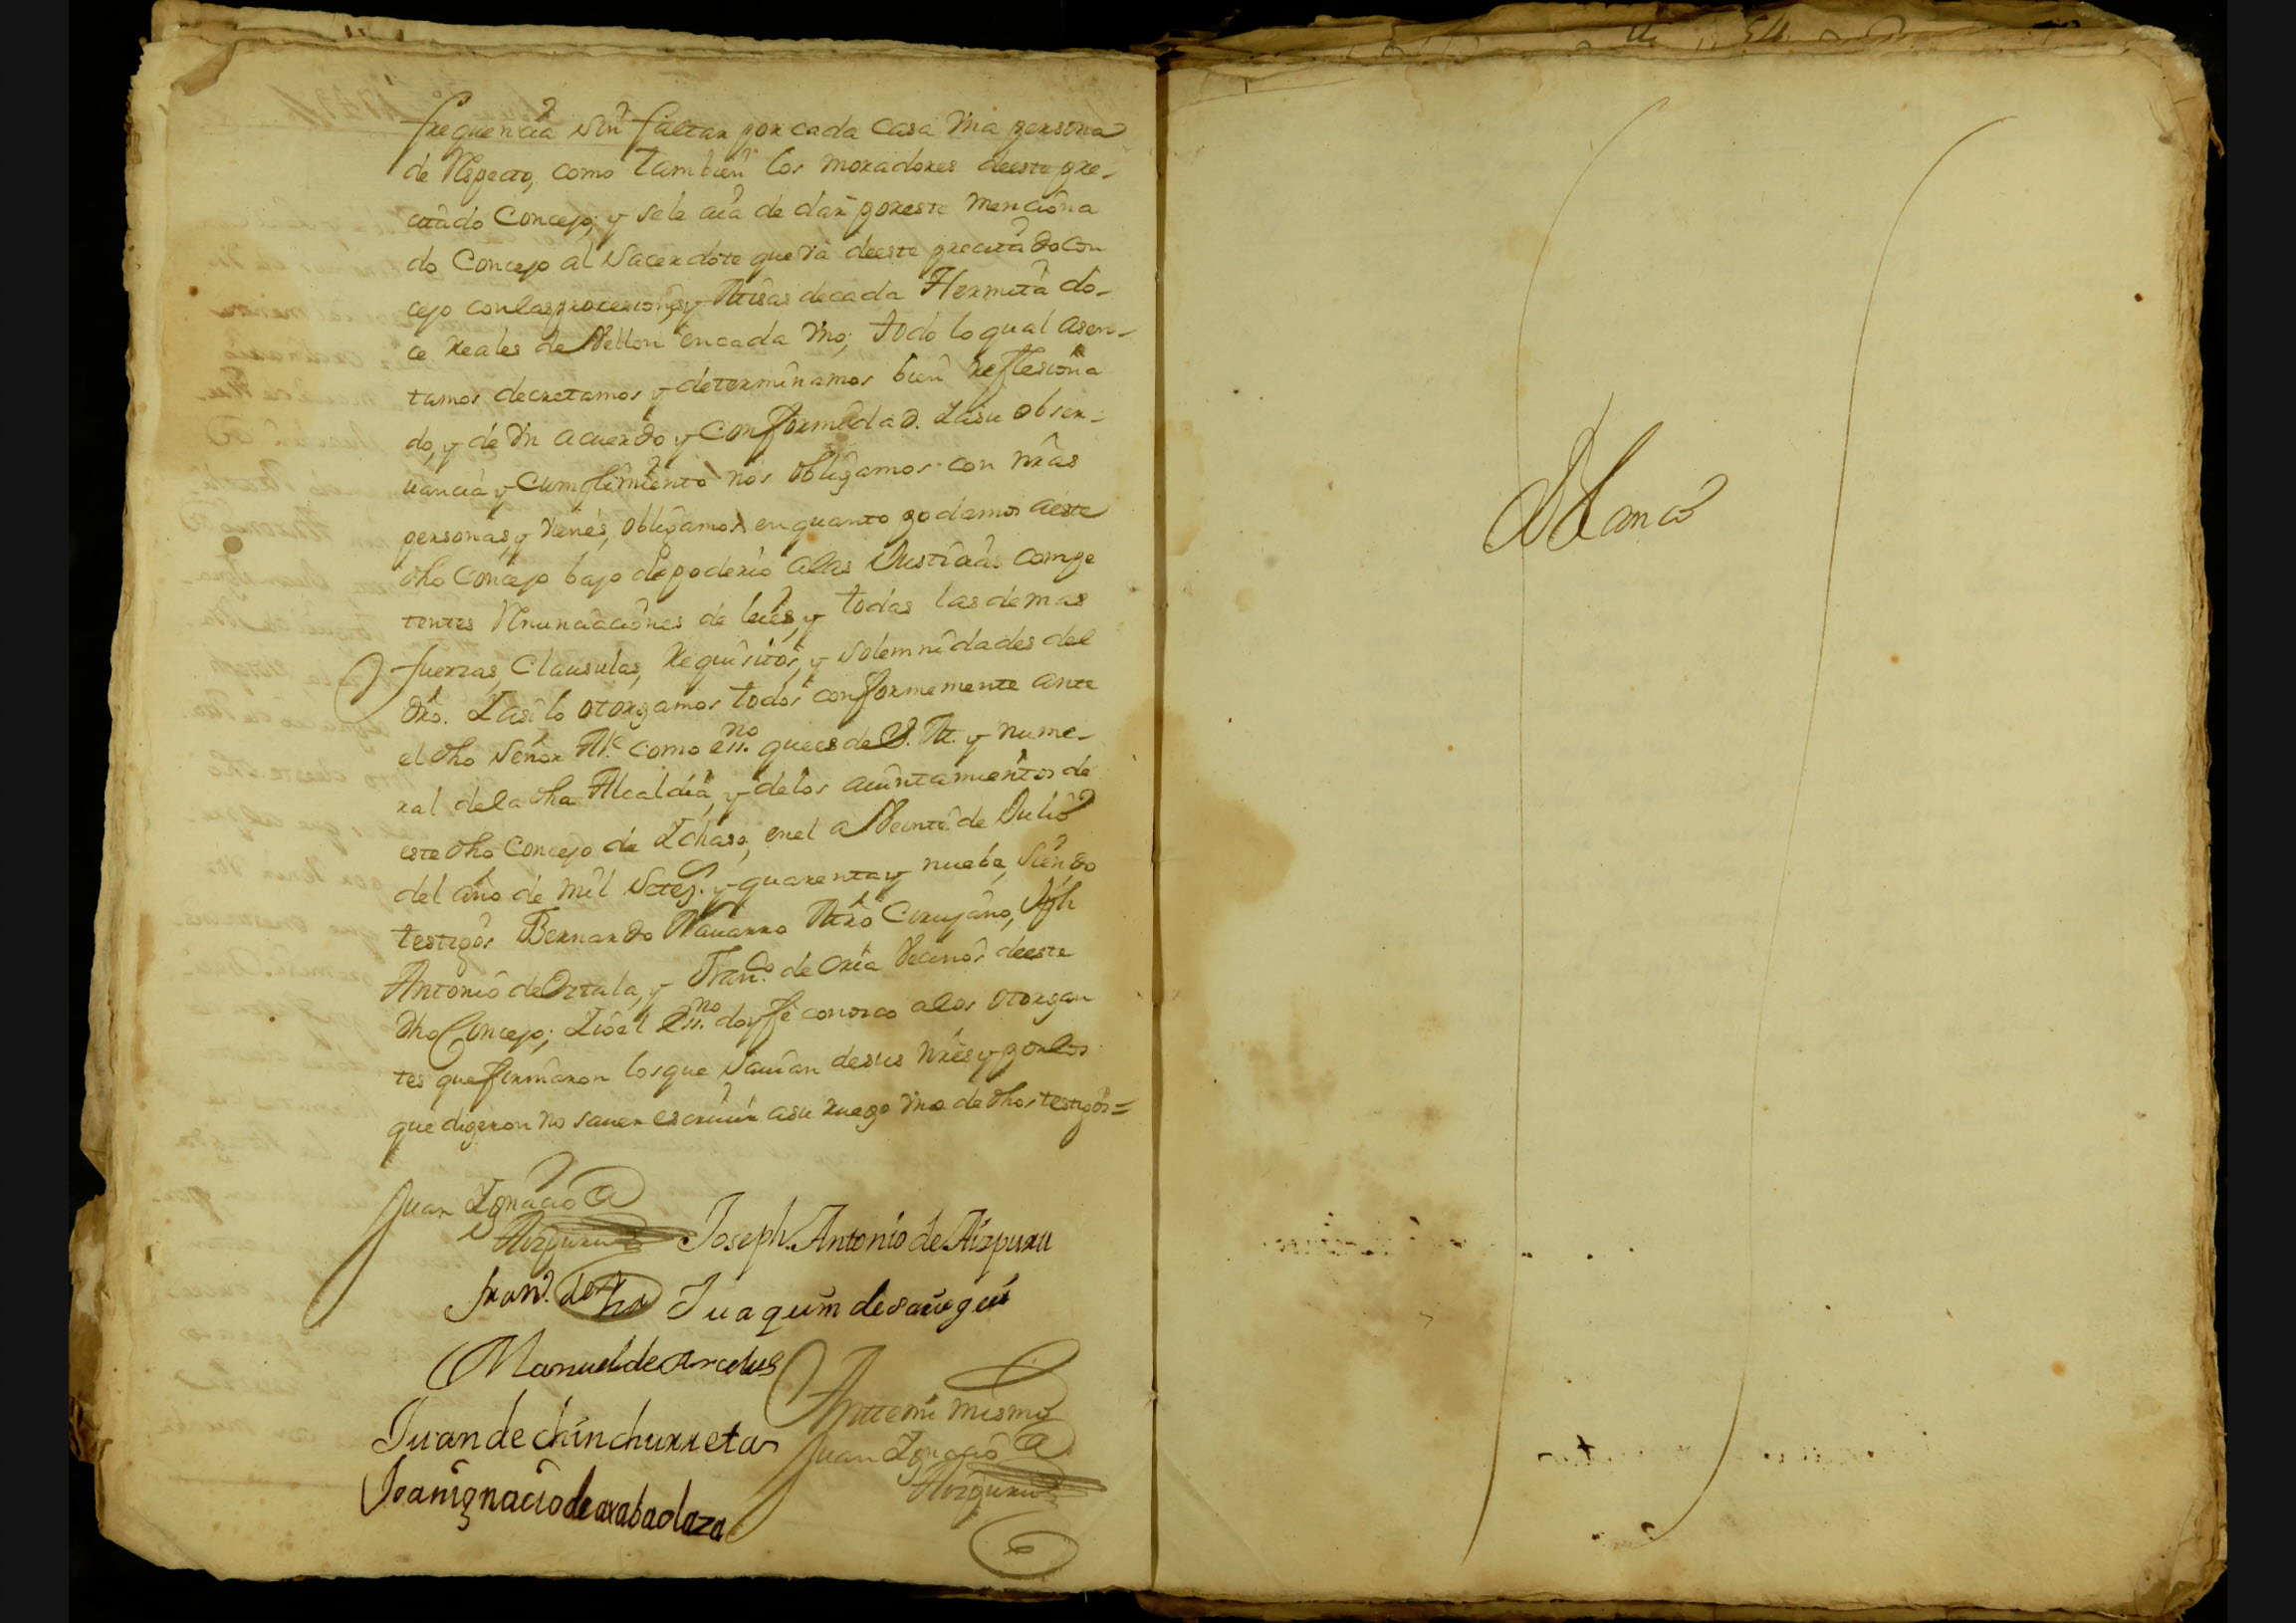 frequencia sin faltar por cada casa vna persona
de Respecto, como tambien los moradores deeste pre-
citado Concejo; y sele aia de dar poreste menciona
do Concejo al Sacerdote que va deeste precitado Con
cejo conlasprocesiones y Misas decada Hermita do-
ce reales de Vellon encada vno; todo lo qual asen-
tamos decretamos y determinamos bien reflesiona
do, y de vn acuerdo y conformidad. Iasu obser-
uancia y Cumplimiento nos obligamos con nras
personas, y vienes, obligamos enquanto podamos aeste
dho Concejo bajo depoderio alas Justicias compe
tentes Renunciaciones de leies, y todas lasdemas
fuerzas, Clausulas, Requisitos, y Solemnidades del
dro. Iasilo otorgamos todos conformemente ante
el dho Señor Al.e como ess.no quees de S. M. y nume-
ral dela dha Alcaldia, y delos aiuntamientos de
este dho Concejo de Ichaso, enel a Veinte de Julio
del año de mil Setez.s y quarentay nuebe, Siendo
testigos Bernardo Nauarro Mro Cirujano, Jph
Antonio deOrtala, y Fran.co de Oria Vecinos deeste
dho Concejo; Iioel ess.no doyfe conozco alos otorgan
tes quefirmaron losque Sauian desus nres y porlos
que digeron no sauer escriuir asu ruego vno de dhos testigos=
Juan Ignacio de
Aizpuru
Joseph Antonio de Aizpuru
fran.co de
Juaquin desarigui
Manuel de Arcelus
Antte mi mismo
Juan de chinchurreta
Juan Ignacio de
Aizpuru
Joan ignacio de arabaolaza
Blanco